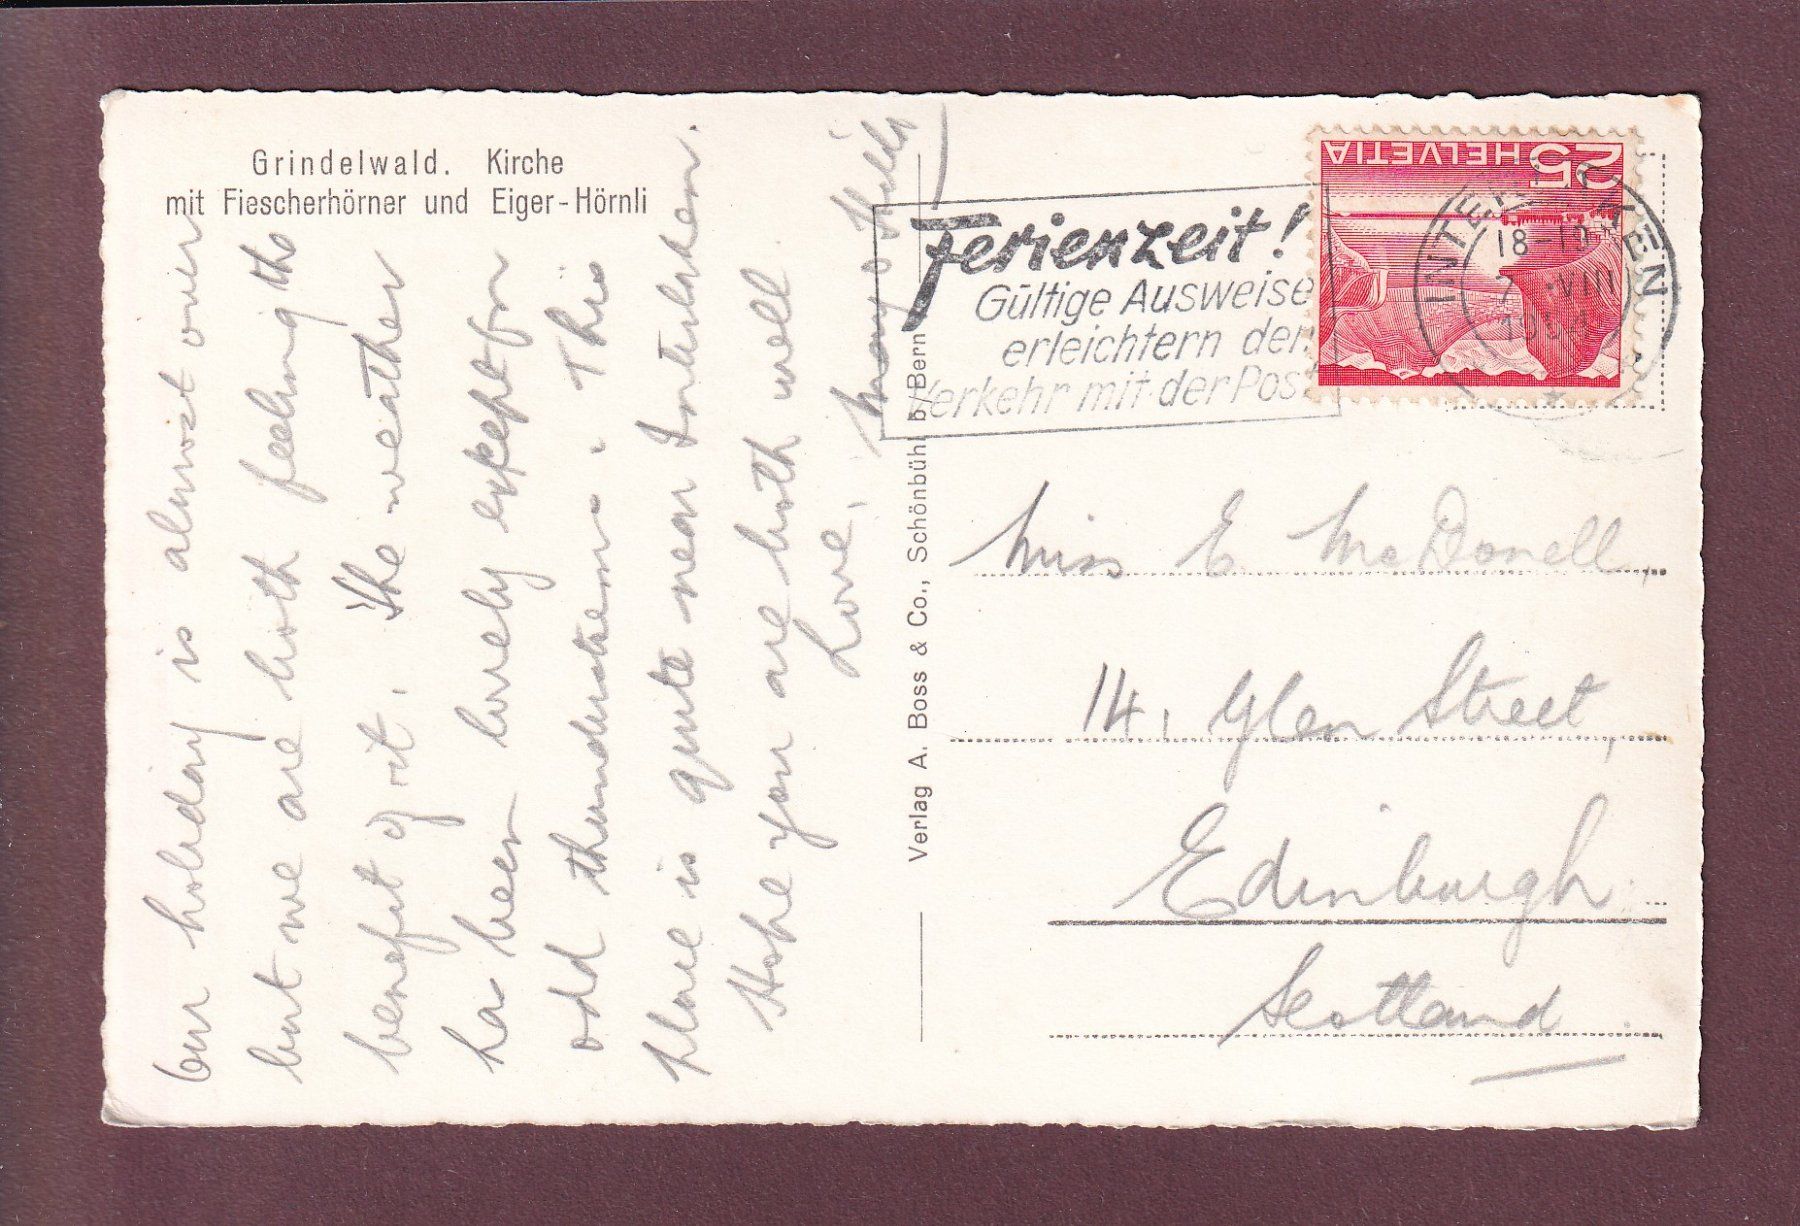 Grindelwald. Kirche
mit Fiescherhörner und Eiger-Hörnli
Our holiday is almost over
but we are both feeling the
benefit of it. The weather
has been lovely except for
odd thunderstorms. This
place is quite near Interlaken.
Hope you are both well
Love,
Mary & Hilda
Verlag A. Boss & Co., Schönbühl b/Bern
Ferienzeit!
Gültige Ausweise
erleichtern den
Verkehr mit der Post
HELVETIA 25
INTERLAKEN
18-19
7. VIII
Miss E. McDonell,
14, Glen Street,
Edinburgh
Scotland